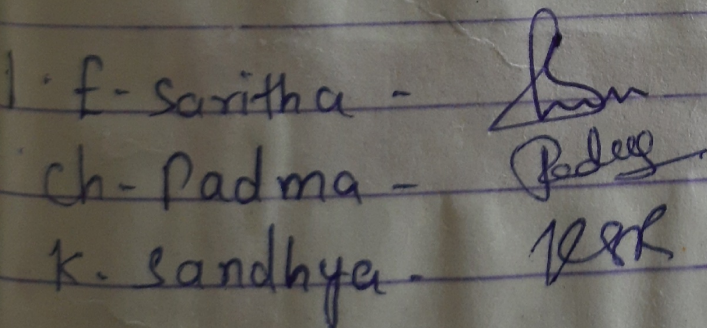 1. E- Saritha -
Ch- Padma - Padma
K. Sandhya -